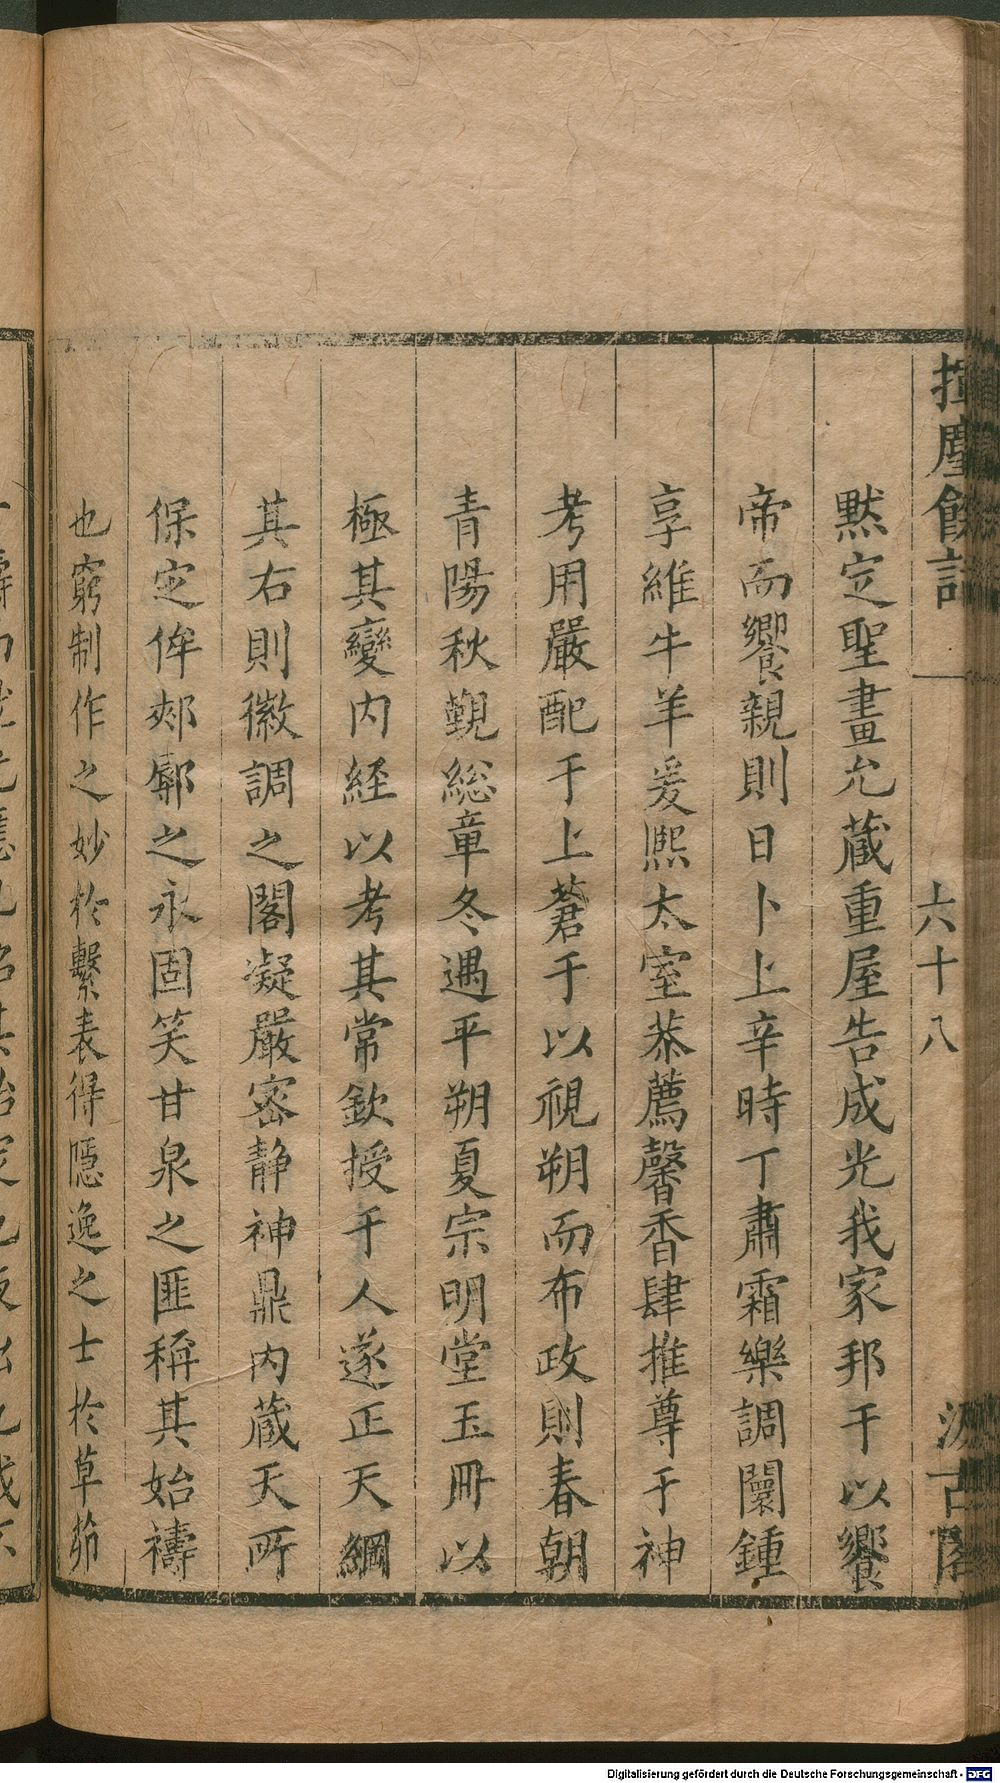 揮麈餘話
一
六十八
汲古閣
黙定聖畫允蔵重屋告成光我家邦于以饗
帝而饗親則日卜上辛時丁肅霜樂調闤鍾
享維牛羊爰熈太室恭薦馨香肆推尊于神
考用嚴配于上蒼于以視朔而布政則春朝
青陽秋覲総章冬遇平朔夏宗明堂玉冊以
極其變内経以考其常欽授于人遂正天綱
其右則徽調之閣凝嚴宻静神鼎内蔵天所
保定侔郟鄏之永固笑甘泉之匪稱其始禱
也窮制作之妙於繫表得隠逸之士於草茆
Digitalisierung gefördert durch die Deutsche Forschungsgemeinschaft - DFG